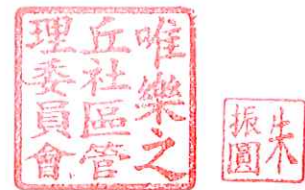 唯樂之
丘社區管
理委員會
朱
振圓